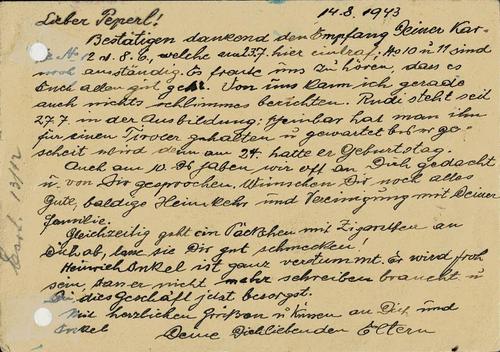 Lieber Peperl! 14.8.1943
Bestätigen dankend den Empfang Deiner Kar-
te No 12 v. 8.6, welche am 23.7. hier eintraf, No 10 u 11 sind
noch ausständig. Es freute uns zu hören, dass es
Euch allen gut geht. Von uns kann ich gerade
auch nichts schlimmes berichten. Rudi steht seit
27.7. in der Ausbildung; scheinbar hat man ihn
für einen Tiroler gehalten u gewartet bis er ge-
scheit wird denn am 24. hatte er Geburtstag.
Auch am 10. haben wir oft an Dich gedacht
u. von Dir gesprochen. Wünschen Dir noch alles
Gute, baldige Heimkehr und Vereinigung mit Deiner
Familie.
Gleichzeitig geht ein Päckchen mit Zigaretten an
Dich ab, lasse sie Dir gut schmecken!
Heinrich Onkel ist ganz verstummt. Er wird froh
sein, dass er nicht mehr schreiben braucht u
Du dies Geschäft jetzt besorgst.
Mit herzlichen Grüßen u Küssen an Dich und
Onkel Deine Dichliebenden Eltern
13/12